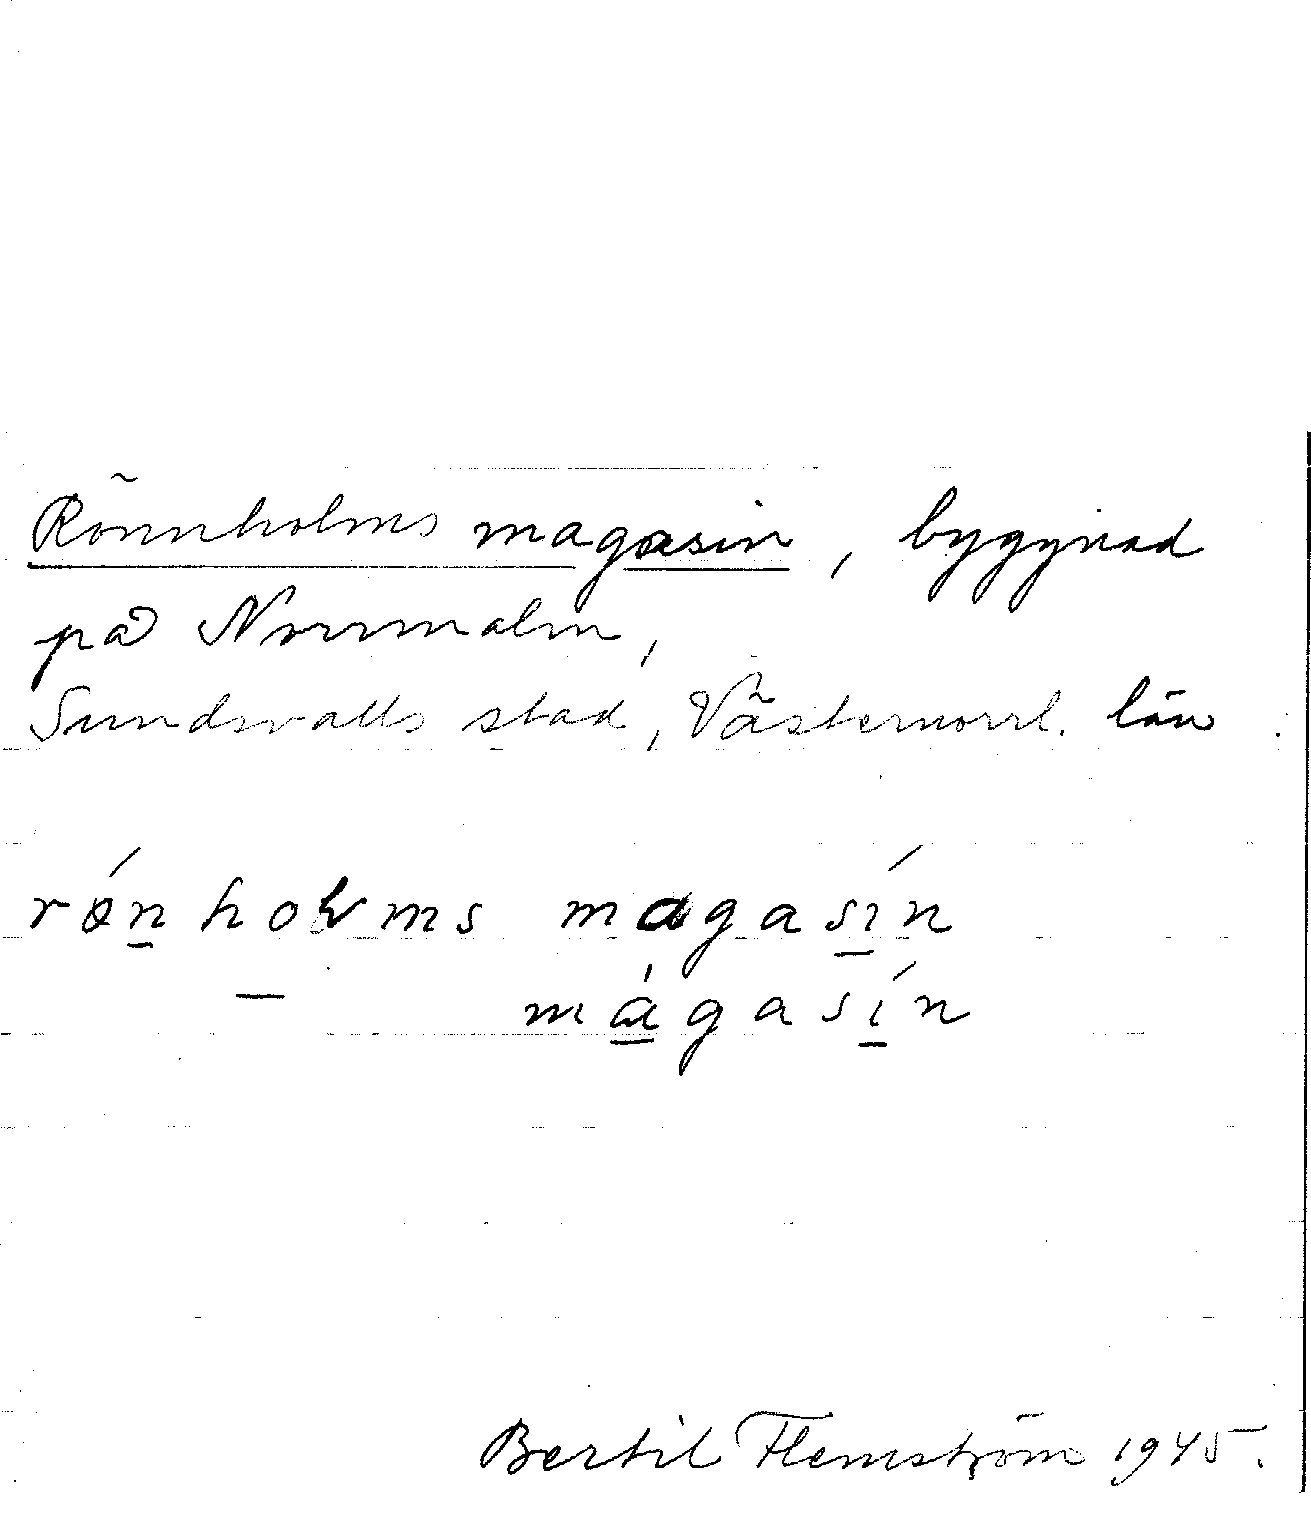 Rönnholms magasin, byggnad
på Norrmalm,
Sundsvalls stad, Västernorrl. län.
rǿnholms magasín
mágasín
Bertil Flemström 1945.